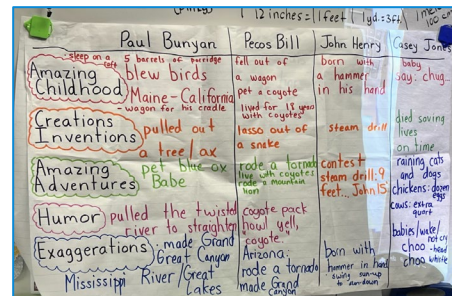 12 inches = 1 feet 1 yd. = 3 ft.
100 cm
Paul Bunyan Pecos Bill John Henry Casey Jones
Amazing Childhood
sleep on a raft 5 barrels of porridge
blew birds
Maine-California
- wagon for his cradle
fell out of
a wagon
pet a coyote
lived for 18 years
with coyotes
born with
a hammer
in his hand
baby
say: chug
Creations
Inventions
pulled out
a tree/ax
lasso out of
a snake
steam drill
died saving
lives
on time
Amazing
Adventures
pet blue ox
Babe
rode a tornado
live with coyotes
rode a mountain
lion
contest
steam drill: 9
feet... John 15
raining cats
and dogs
chickens: dozen
eggs
cows: extra
quart
Humor
pulled the twisted
river to straighten
coyote pack
howl, yell,
coyote..
babies/wake/
not cry
choo-
choo
Exaggerations
: made Grand
Great Canyon
Mississippi River/Great
Lakes
Arizona:
rode a tornado
made Grand
Canyon
born with
hammer in hand
swing sun-up
to sun-down